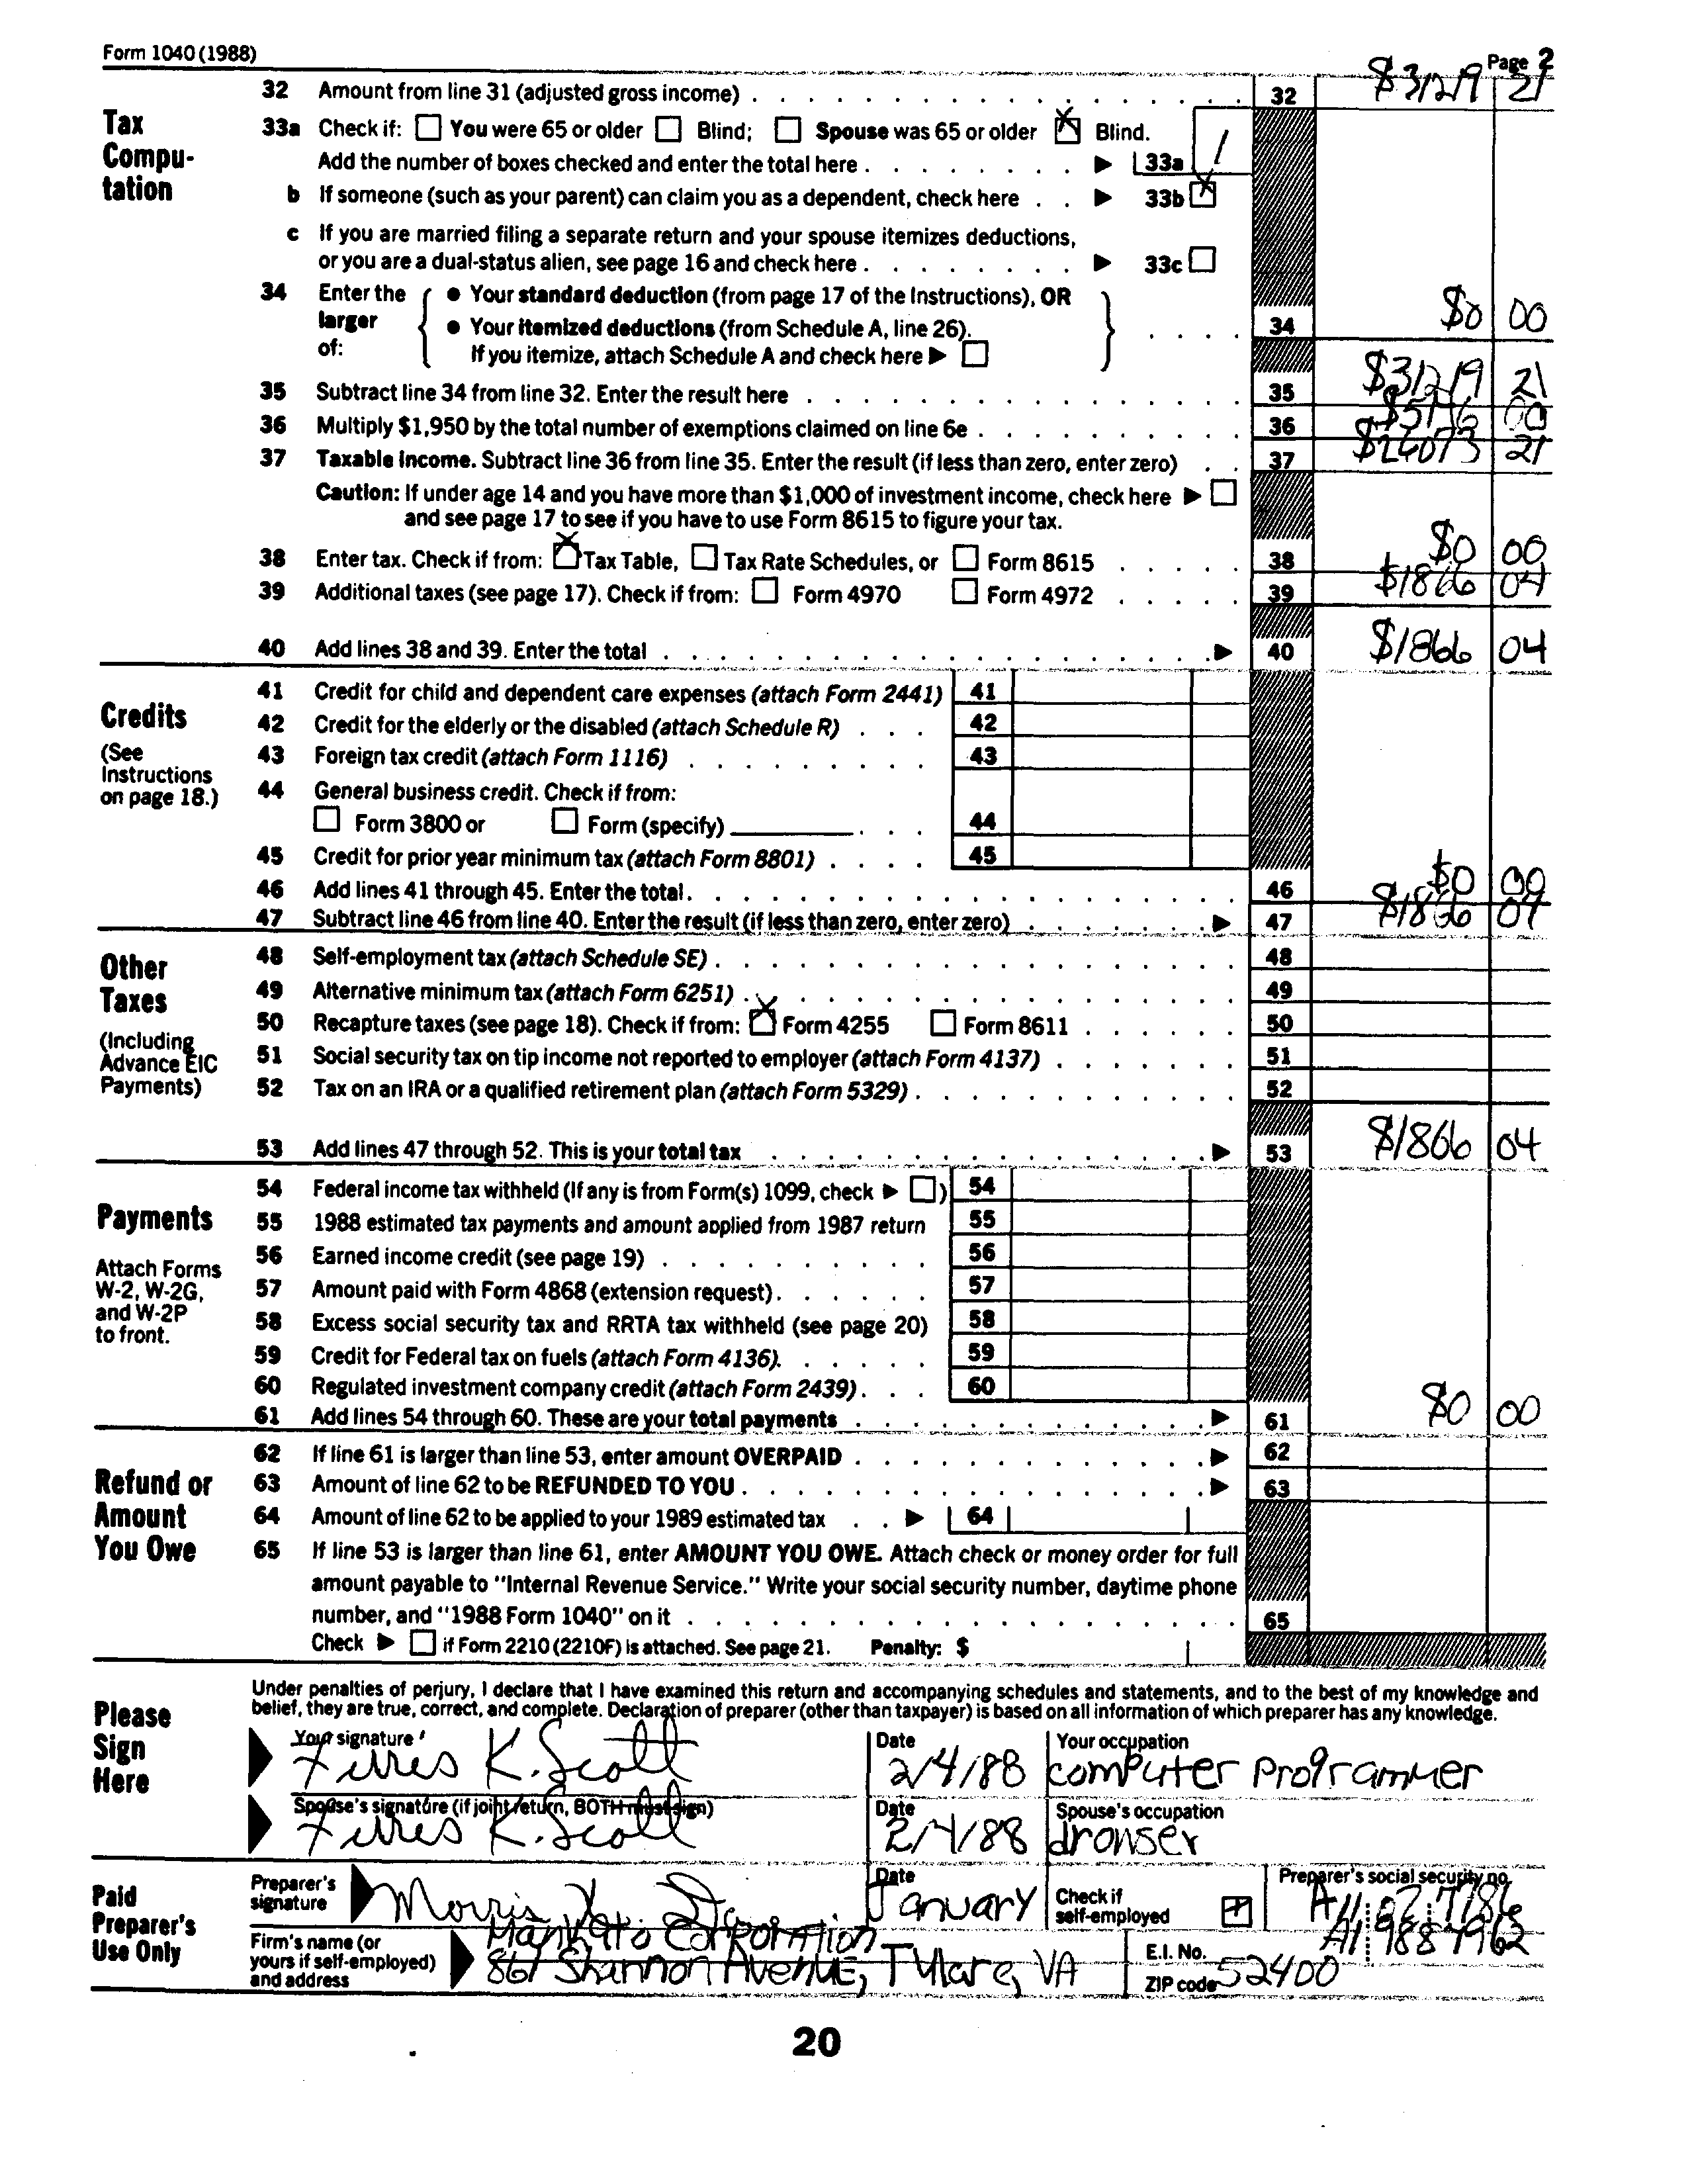 Form 1040 (1988)
Page 2
Tax Compu-tation
32 Amount from line 31 (adjusted gross income) 32 $31219 21
33a Check if: You were 65 or older Blind; Spouse was 65 or older X Blind.
Add the number of boxes checked and enter the total here 33a 1
b If someone (such as your parent) can claim you as a dependent, check here 33b X
c If you are married filing a separate return and your spouse itemizes deductions,
or you are a dual-status alien, see page 16 and check here 33c
34 Enter the larger of:
● Your standard deduction (from page 17 of the Instructions), OR
● Your itemized deductions (from Schedule A, line 26).
If you itemize, attach Schedule A and check here
34 $0 00
35 Subtract line 34 from line 32. Enter the result here 35 $31219 21
36 Multiply $1,950 by the total number of exemptions claimed on line 6e 36 00
37 Taxable income. Subtract line 36 from line 35. Enter the result (if less than zero, enter zero) 37 21
Caution: If under age 14 and you have more than $1,000 of investment income, check here
and see page 17 to see if you have to use Form 8615 to figure your tax.
38 Enter tax. Check if from: X Tax Table, Tax Rate Schedules, or Form 8615 38 $0 00
39 Additional taxes (see page 17). Check if from: Form 4970 Form 4972 39 $1866 04
40 Add lines 38 and 39. Enter the total 40 $1866 04
Credits
(See Instructions on page 18.)
41 Credit for child and dependent care expenses (attach Form 2441) 41
42 Credit for the elderly or the disabled (attach Schedule R) 42
43 Foreign tax credit (attach Form 1116) 43
44 General business credit. Check if from:
Form 3800 or Form (specify) 44
45 Credit for prior year minimum tax (attach Form 8801) 45
46 Add lines 41 through 45. Enter the total 46 $0 00
47 Subtract line 46 from line 40. Enter the result (if less than zero, enter zero) 47 $1866 04
Other Taxes
(Including Advance EIC Payments)
48 Self-employment tax (attach Schedule SE) 48
49 Alternative minimum tax (attach Form 6251) 49
50 Recapture taxes (see page 18). Check if from: X Form 4255 Form 8611 50
51 Social security tax on tip income not reported to employer (attach Form 4137) 51
52 Tax on an IRA or a qualified retirement plan (attach Form 5329) 52
53 Add lines 47 through 52. This is your total tax 53 $1866 04
Payments
Attach Forms W-2, W-2G, and W-2P to front.
54 Federal income tax withheld (If any is from Form(s) 1099, check ) 54
55 1988 estimated tax payments and amount applied from 1987 return 55
56 Earned income credit (see page 19) 56
57 Amount paid with Form 4868 (extension request) 57
58 Excess social security tax and RRTA tax withheld (see page 20) 58
59 Credit for Federal tax on fuels (attach Form 4136). 59
60 Regulated investment company credit (attach Form 2439) 60
61 Add lines 54 through 60. These are your total payments 61 $0 00
Refund or Amount You Owe
62 If line 61 is larger than line 53, enter amount OVERPAID 62
63 Amount of line 62 to be REFUNDED TO YOU 63
64 Amount of line 62 to be applied to your 1989 estimated tax 64
65 If line 53 is larger than line 61, enter AMOUNT YOU OWE. Attach check or money order for full
amount payable to "Internal Revenue Service." Write your social security number, daytime phone
number, and "1988 Form 1040" on it 65
Check if Form 2210 (2210F) is attached. See page 21. Penalty: $
Please Sign Here
Under penalties of perjury, I declare that I have examined this return and accompanying schedules and statements, and to the best of my knowledge and
belief, they are true, correct, and complete. Declaration of preparer (other than taxpayer) is based on all information of which preparer has any knowledge.
Your signature Date Your occupation
K. Scott 2/4/88 computer programmer
Spouse's signature (if joint return, BOTH must sign) Date Spouse's occupation
K. Scott 2/4/88 drowser
Paid Preparer's Use Only
Preparer's signature Morris Date January Check if self-employed Preparer's social security no.
Firm's name (or yours if self-employed) and address
Mankato Corporation
861 Shannon Avenue, Tylare, VA
E.I. No.
ZIP code 52400
20